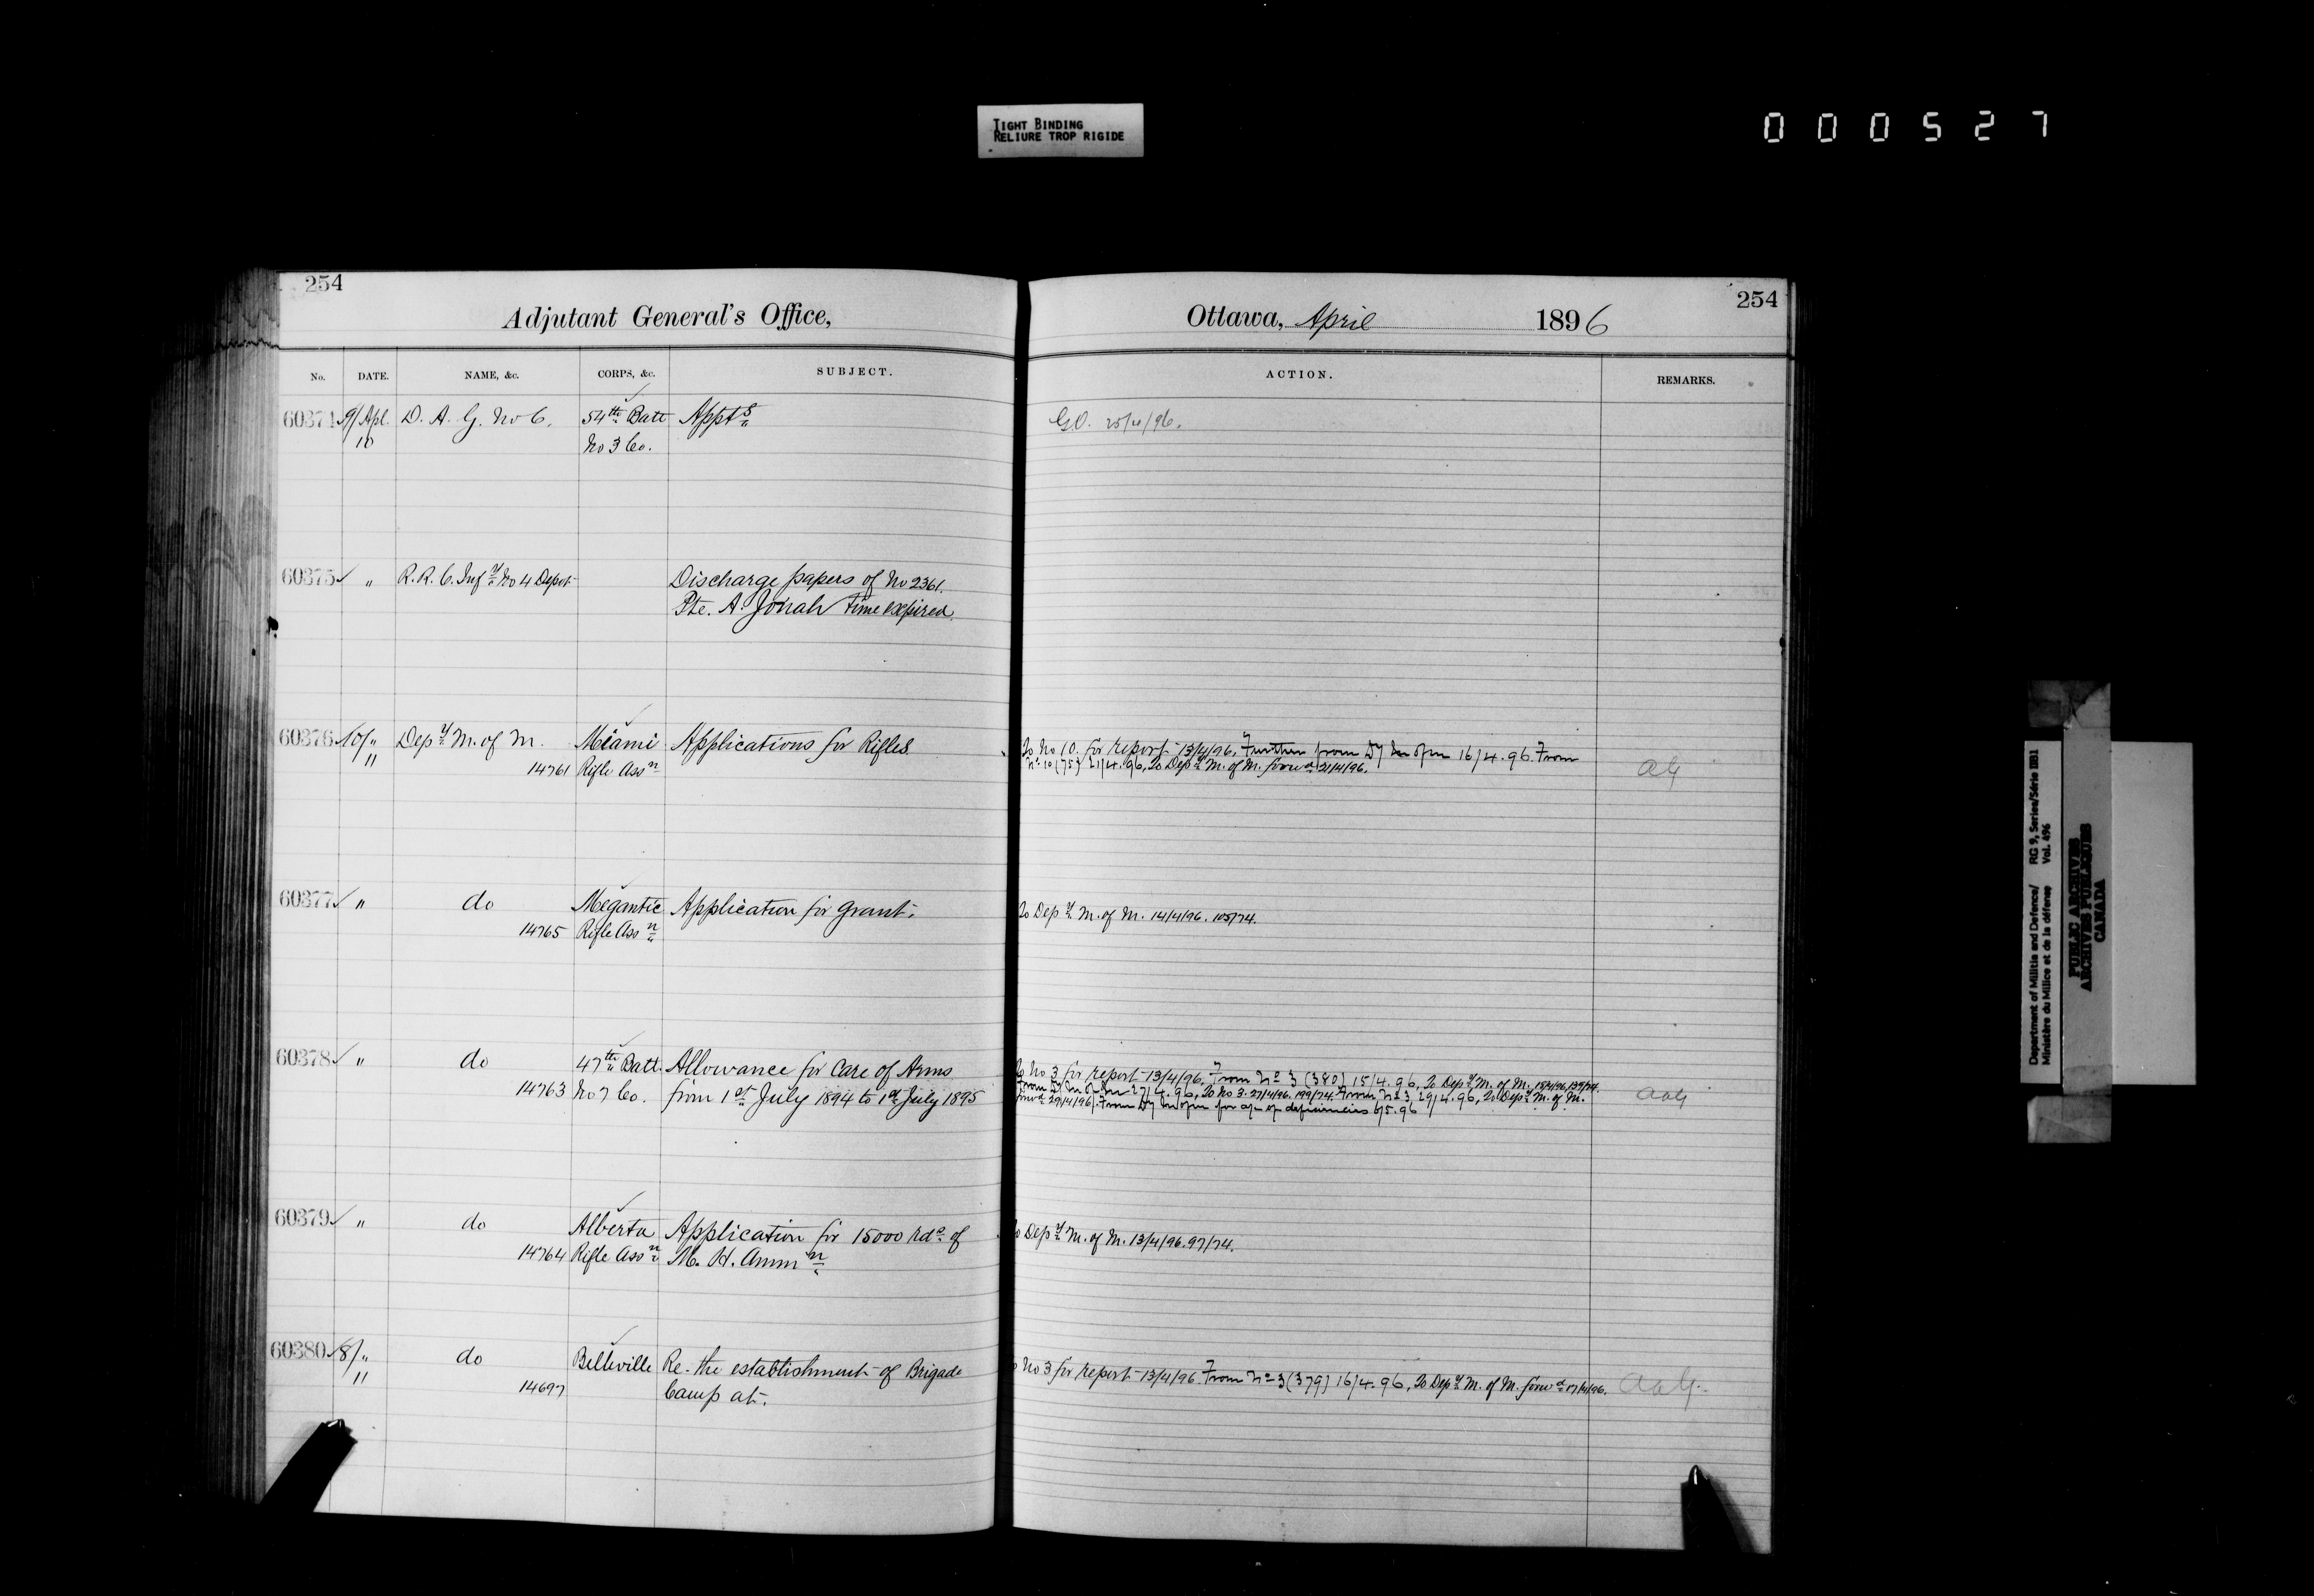 TIGHT BINDING
RELIURE TROP RIGIDE
000527
254
Adjutant General's Office,
Ottawa, April 1896
254
No. DATE. NAME, &c. CORPS, &c. SUBJECT. ACTION. REMARKS.
60374 9/Apl. D. A. G. No 6. 54th Batt Appts G.O. 25/4/96.
10 No 3 Co.
60375 " R. R. C. Infy No 4 Depot Discharge papers of No 2361.
Pte. A. Jonah Time expired.
60376 10/" Depy M. of M. Miami Applications for Rifles To No 10. for report 13/4/96, Further from Dy 16/4.96. From
11 14761 Rifle Assn No 10 (75) 21/4.96, To Depy M. of M. forwd 21/4/96. AG
60377 " do Megantic Application for Grant. To Depy M. of M. 14/4/96. 105/74.
14765 Rifle Assn
60378 " do 47th Batt. Allowance for Care of Arms To No 3 for report 13/4/96. From No 3 (380) 15/4.96, To Depy M. of M. 139/74.
14763 No 7 Co. from 1st July 1894 to 1st July 1895 From Dy 27/4.96, To No 3. 27/4/96. 199/74. From No 3 29/4.96, To Depy M. of M.
forwd 29/4/96. From Dy for of deficiencies 6/5.96 AAG
60379 " do Alberta Application for 15000 rds of To Depy M. of M. 13/4/96. 97/74.
14764 Rifle Assn M. H. Ammn
60380 8/" do Belleville Re- the establishment of Brigade To No 3 for report 13/4/96. From No 3 (379) 16/4.96, To Depy M. of M. forwd 17/4/96. AAG.
11 14697 Camp at.
Department of Militia and Defence/ RG 9, Series/Série IIB1
Ministère du Milice et de la défense Vol. 496
PUBLIC ARCHIVES
ARCHIVES PUBLIQUES
CANADA